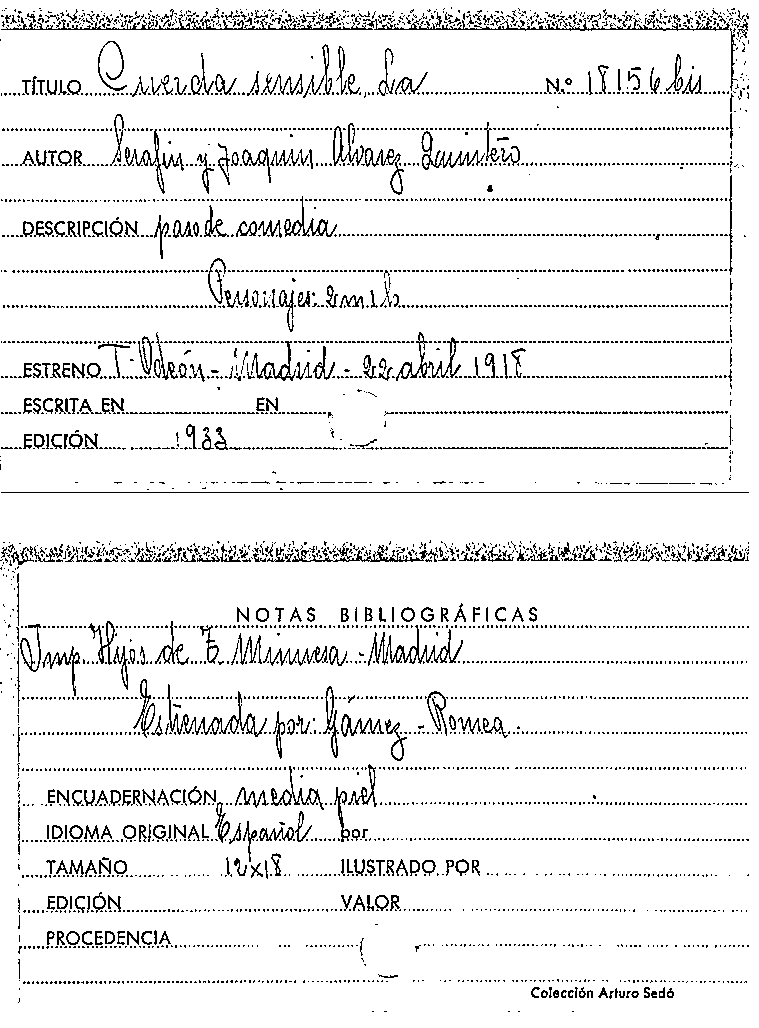 TÍTULO Cuerda sensible, La N.º 18156 bis
AUTOR Serafin y Joaquin Alvarez Quintero
DESCRIPCIÓN paso de comedia
Personajes: 2m 1h
ESTRENO T. Odeón - Madrid - 22 abril 1918
ESCRITA EN EN
EDICIÓN 1933
NOTAS BIBLIOGRÁFICAS
Imp. Hijos de E. Minuesa - Madrid
Estrenada por: Gámez - Romea.
ENCUADERNACIÓN media piel
IDIOMA ORIGINAL Español por
TAMAÑO 12x18 ILUSTRADO POR
EDICIÓN VALOR
PROCEDENCIA
Colección Arturo Sedó